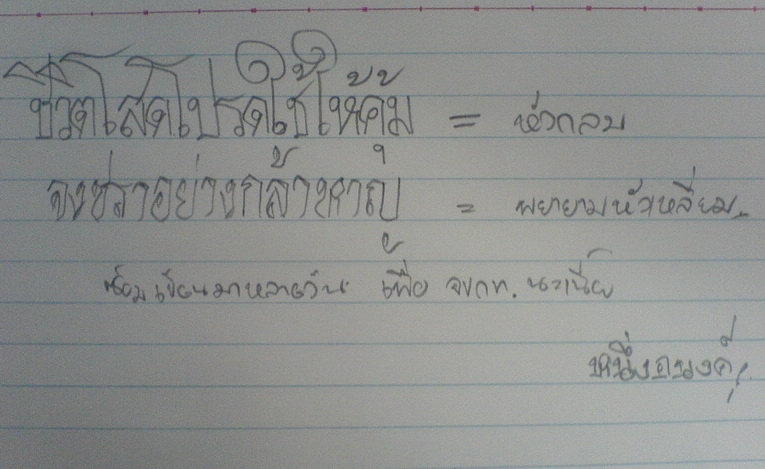 ชีวิตโสดโปรดใช้ให้คุ้ม = หัวกลม
จงชราอย่างกล้าหาญ = พยายามหัวเหลี่ยม
ซ้อมเขียนมาหลายวัน เพื่อ จขกท. นะเนี่ย